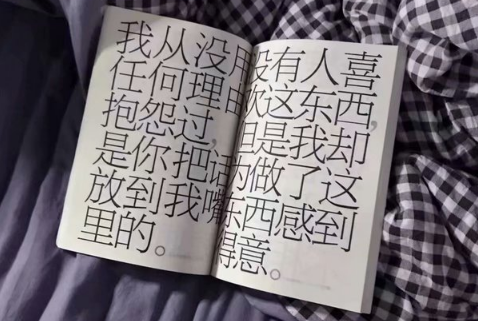 我从没用
任何理由
抱怨过,
是你把话
放到我嘴
里的。
没有人喜
欢这东西,
但是我却
为做了这
东西感到
得意。